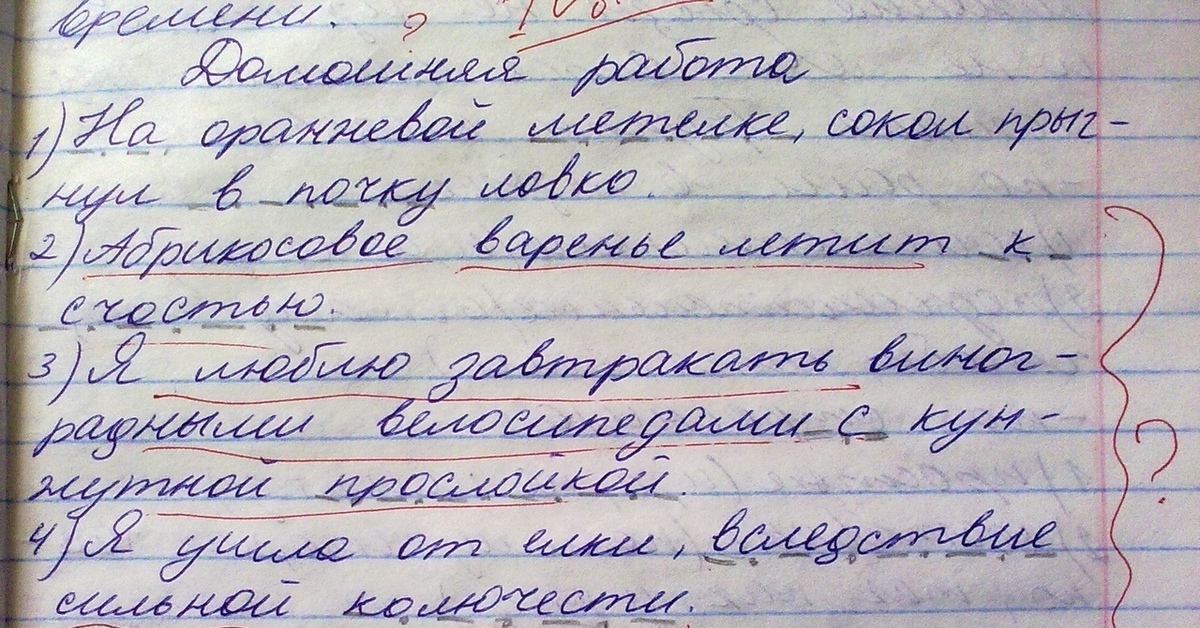 времени.
Домашняя работа
1) На оранжевой метелке, сокол прыг-
нул в почку ловко.
2) Абрикосовое варенье летит к
счастью.
3) Я люблю завтракать виног-
радными велосипедами с кун-
жутной прослойкой.
4) Я ушла от елки, вследствие
сильной колючести.
?